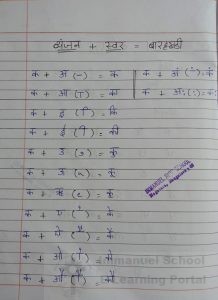 व्यंजन + स्वर = बारहखड़ी
क + अ (-) = क
क + आ (ा) = का
क + इ (ि) = कि
क + ई (ी) = की
क + उ (ु) = कु
क + ऊ (ू) = कू
क + ऋ (ृ) = कृ
क + ए (े) = के
क + ऐ (ै) = कै
क + ओ (ो) = को
क + औ (ौ) = कौ
क + अं (ं) = कं
क + अः (ः) = कः
Immanuel School
Learning Portal